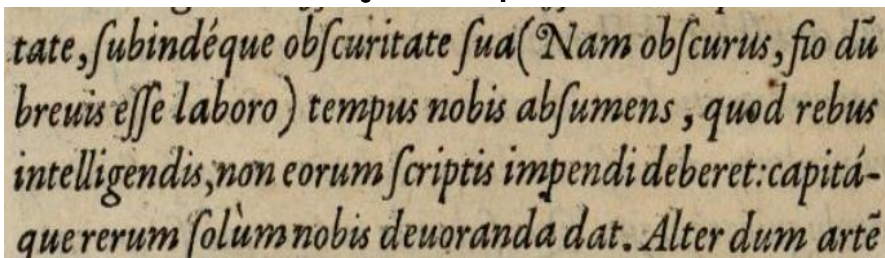 tate, ſubindéque obſcuritate ſua (Nam obſcurus, fio dũ
breuis eſſe laboro) tempus nobis abſumens, quod rebus
intelligendis, non eorum ſcriptis impendi deberet: capitá-
que rerum ſolùm nobis deuoranda dat. Alter dum artẽ